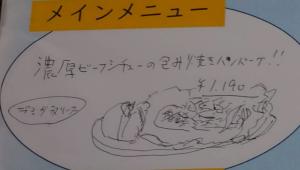 メインメニュー
濃厚ビーフシチューの包み焼きハンバーグ!!
¥1,190〜
デミグラスソース